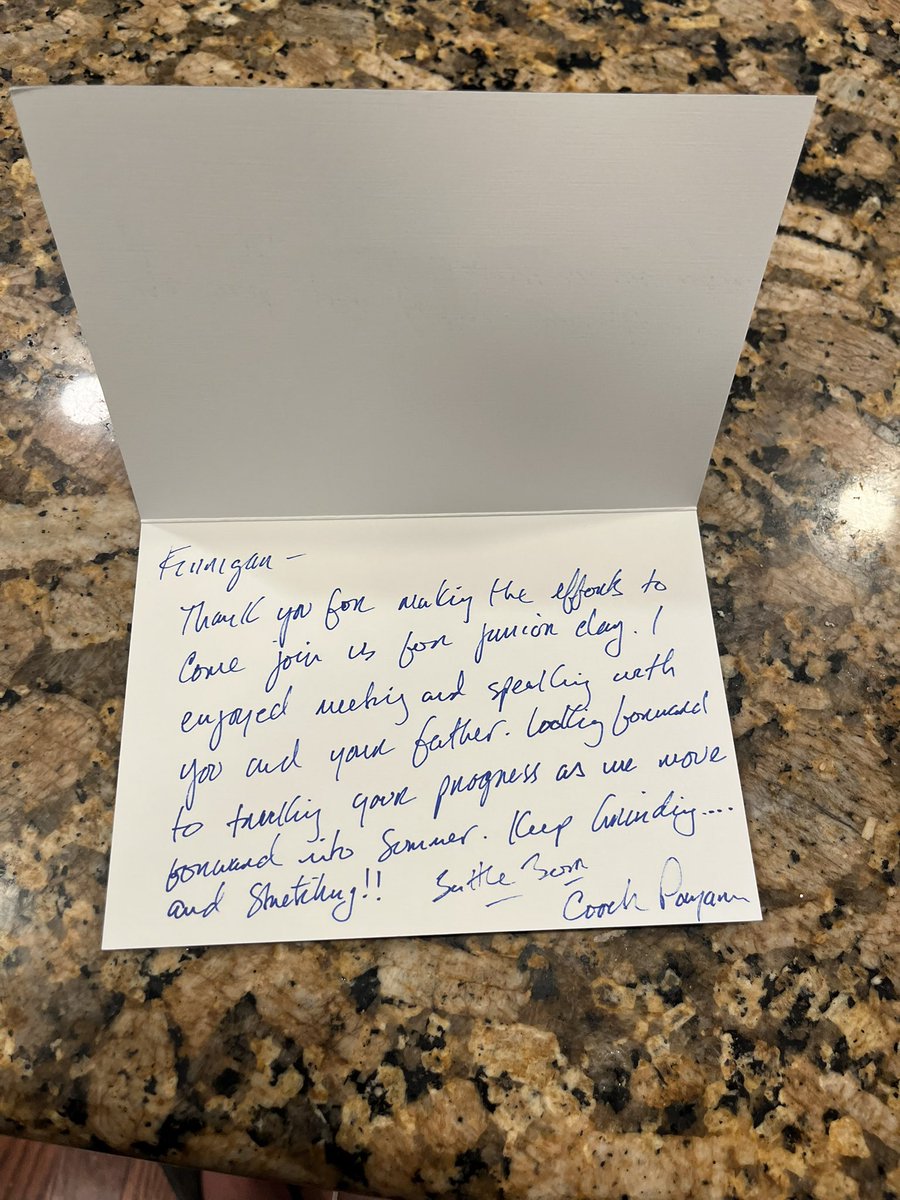 Finnigan -
Thank you for making the efforts to
come join us for junior day. I
enjoyed meeting and speaking with
you and your father. Looking forward
to tracking your progress as we move
forward into Summer. Keep Grinding....
and Stretching!! Battle Born
Coach